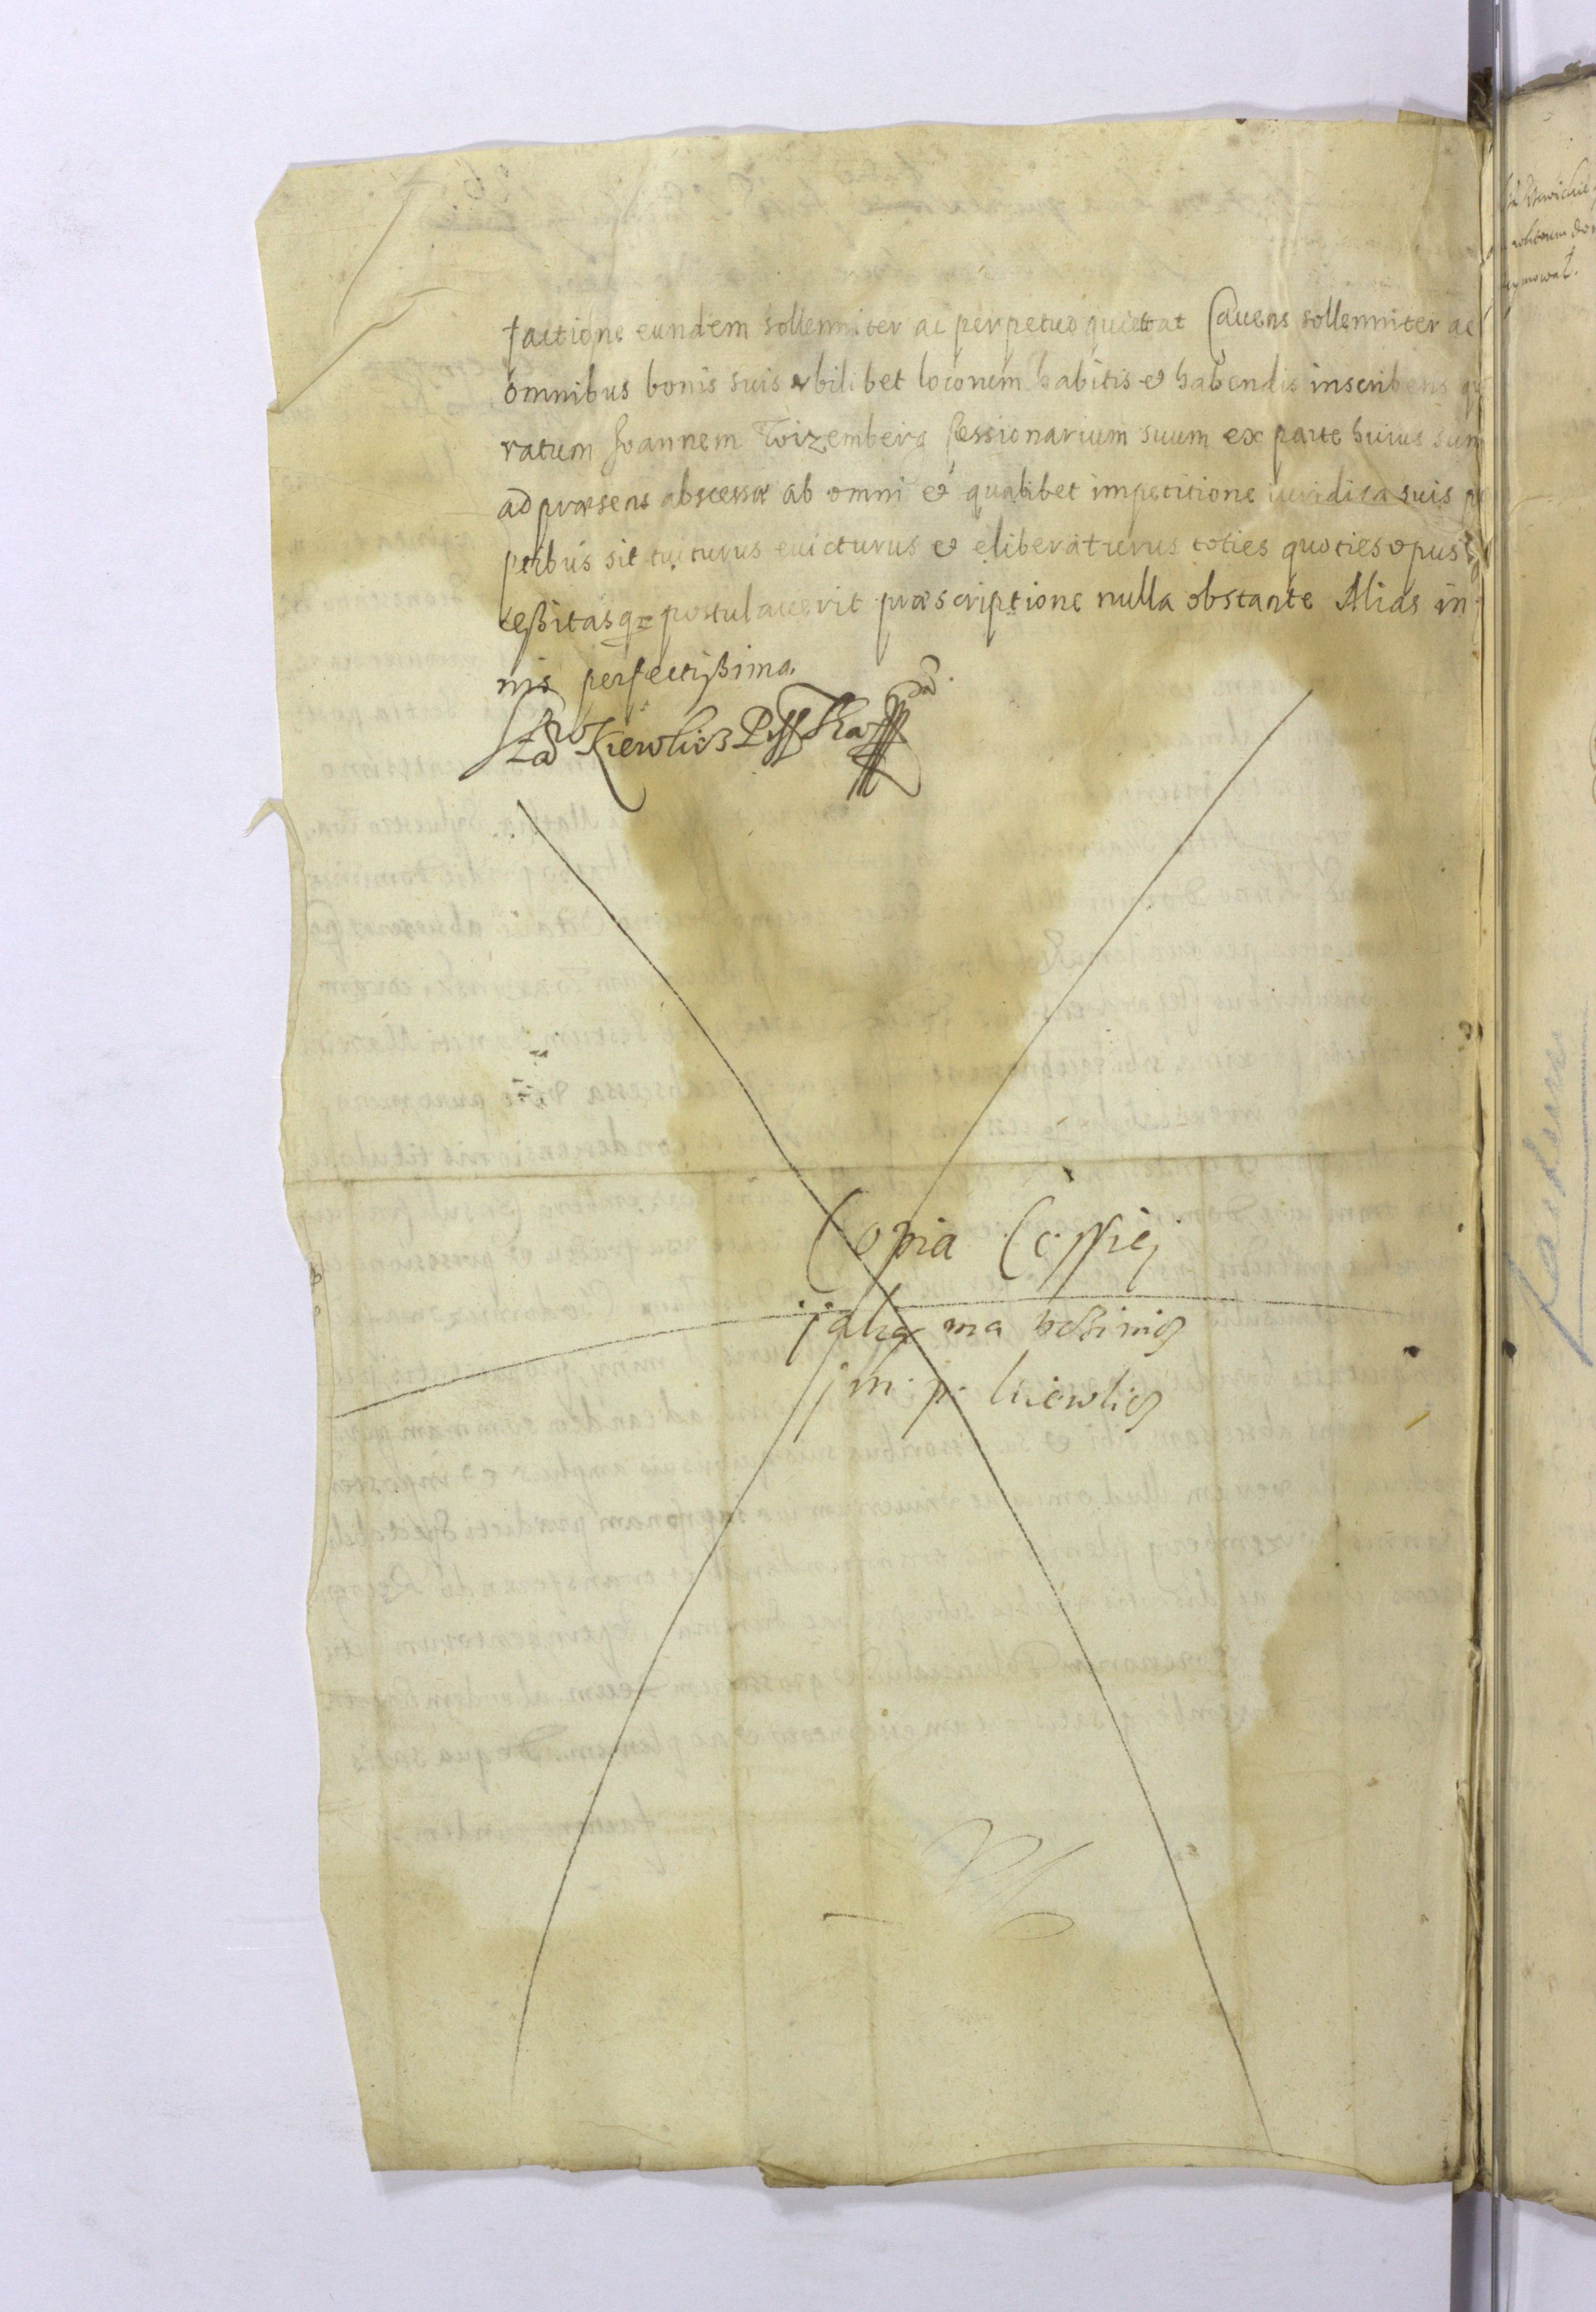 factione eundem sollenniter ac perpetuo quiettat Cavens sollenniter ac
omnibus bonis suis vbilibet locorum habitis et habendis inscribens
ratum Joannem Toizemberg Cessionarium suum ex parte huius
ad præsens abscessæ ab omni et qualibet impetitione iuridica suis
ptibus sit tuiturus euicturus et eliberaturus toties quoties opus
cessitasq postulauerit præscriptione nulla obstante Alias in
nis perfectissima.
Kiewlicz
Copia Cessiej
jaką ma uczinicz
jm. p. kiewlicz